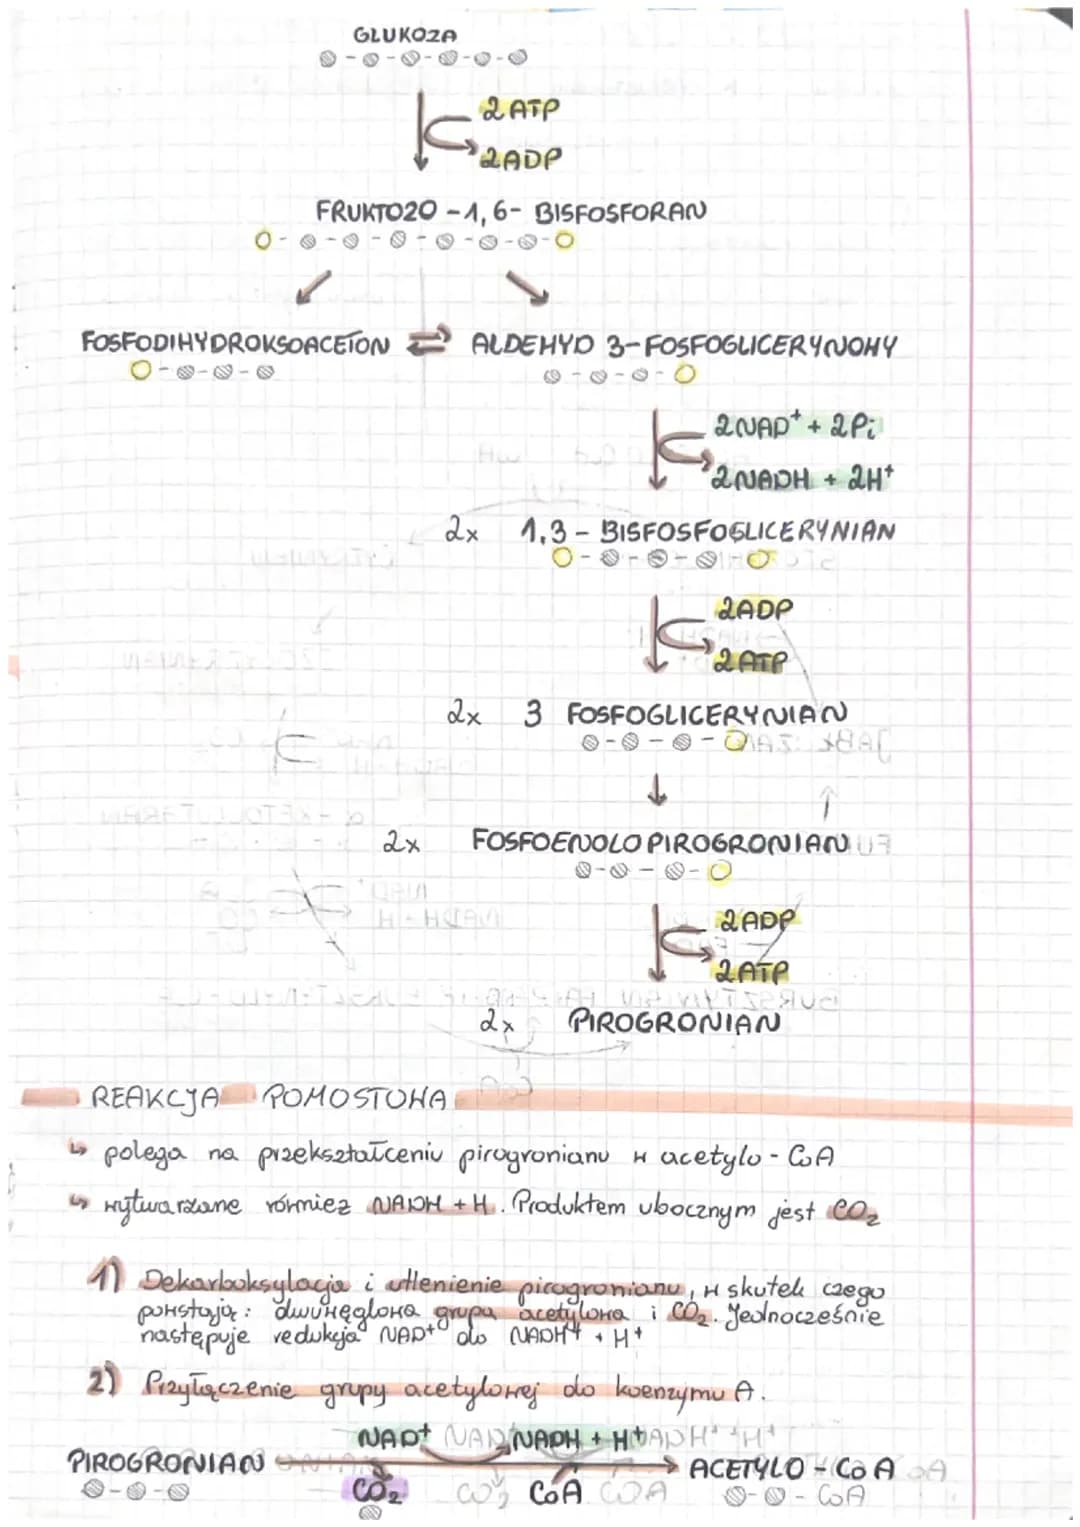 GLUKOZA
2 ATP
2ADP
FRUKTOZO - 1,6 - BISFOSFORAN
FOSFODIHYDROKSOACETON ⇌ ALDEHYD 3-FOSFOGLICERYNOWY
2NAD+ + 2Pi
2NADH + 2H+
2x 1,3 - BISFOSFOGLICERYNIAN
2ADP
2ATP
2x 3 FOSFOGLICERYNIAN
2x FOSFOENOLOPIROGRONIAN
2ADP
2ATP
2x PIROGRONIAN
REAKCJA POMOSTOWA
↳ polega na przekształceniu pirogronianu w acetylo - CoA
↳ wytwarzane również NADH + H. Produktem ubocznym jest CO2
1) Dekarboksylacja i utlenienie pirogronianu, w skutek czego
powstają: dwuwęglowa grupa acetylowa i CO2. Jednocześnie
następuje redukcja NAD+ do NADH+ + H+
2) Przyłączenie grupy acetylowej do koenzymu A.
NAD+ NADH + H+
PIROGRONIAN → ACETYLO - CoA
CO2 CoA - CoA